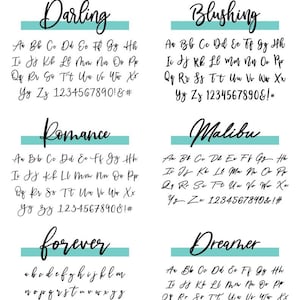 Darling
Aa Bb Cc Dd Ee Ff Gg Hh
Ii Jj Kk Ll Mm Nn Oo Pp
Qq Rr Ss Tt Uu Vv Ww Xx
Yy Zz 1234567890!&#
Blushing
Aa Bb Cc Dd Ee Ff Gg Hh
Ii Jj Kk Ll Mm Nn Oo Pp
Qq Rr Ss Tt Uu Vv Ww Xx
Yy Zz 1234567890!&*
Romance
Aa Bb Cc Dd Ee Ff Gg Hh
Ii Jj Kk Ll Mm Nn Oo Pp
Qq Rr Ss Tt Uu Vv Ww Xx
Yy Zz 1234567890!&#
Malibu
Aa Bb Cc Dd Ee Ff Gg Hh
Ii Jj Kk Ll Mm Nn Oo Pp
Qq Rr Ss Tt Uu Vv Ww Xx
Yy Zz 1234567890!&#
forever
a b c d e f g h i j k l m
n o p q r s t u v w x y z
Dreamer
Aa Bb Cc Dd Ee Ff Gg Hh
Ii Jj Kk Ll Mm Nn Oo Pp
Qq Rr Ss Tt Uu Vv Ww Xx